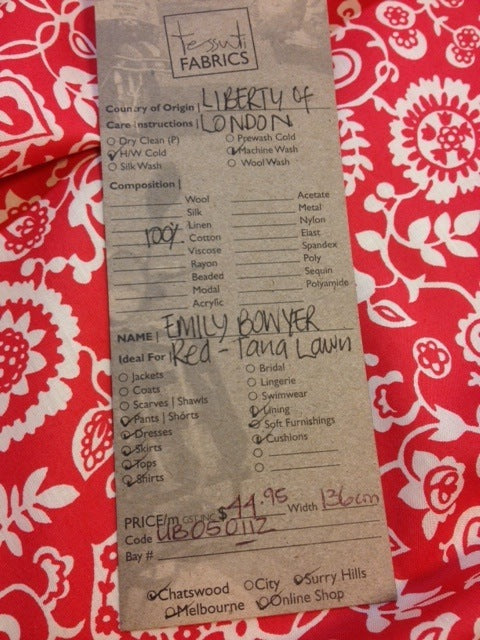 Tessuti
FABRICS
Country of Origin | LIBERTY of
Care instructions | LONDON
Dry Clean (P) Prewash Cold
H/W Cold Machine Wash
Silk Wash Wool Wash
Composition |
Wool Acetate
Silk Metal
Linen Nylon
100% Cotton Elast
Viscose Spandex
Rayon Poly
Beaded Sequin
Modal Polyamide
Acrylic
NAME | EMILY BOWYER
Ideal For | Red - Tana Lawn
Jackets Bridal
Coats Lingerie
Scarves | Shawls Swimwear
Pants | Shorts Lining
Dresses Soft Furnishings
Skirts Cushions
Tops
Shirts
PRICE/m GST INC $44.95 Width 136cm
Code LIB050112
Bay #
Chatswood City Surry Hills
Melbourne Online Shop